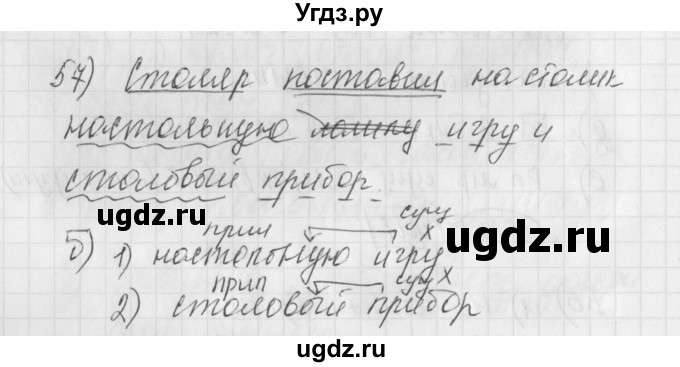 Угдз.ру
57) Столяр поставил на столик
настольную игру и
столовый прибор.
ugdz.ru ugdz.ru
прил сущ
х
б) 1) настольную игру
прил сущ х
2) столовый прибор
ugdz.ru ugdz.ru